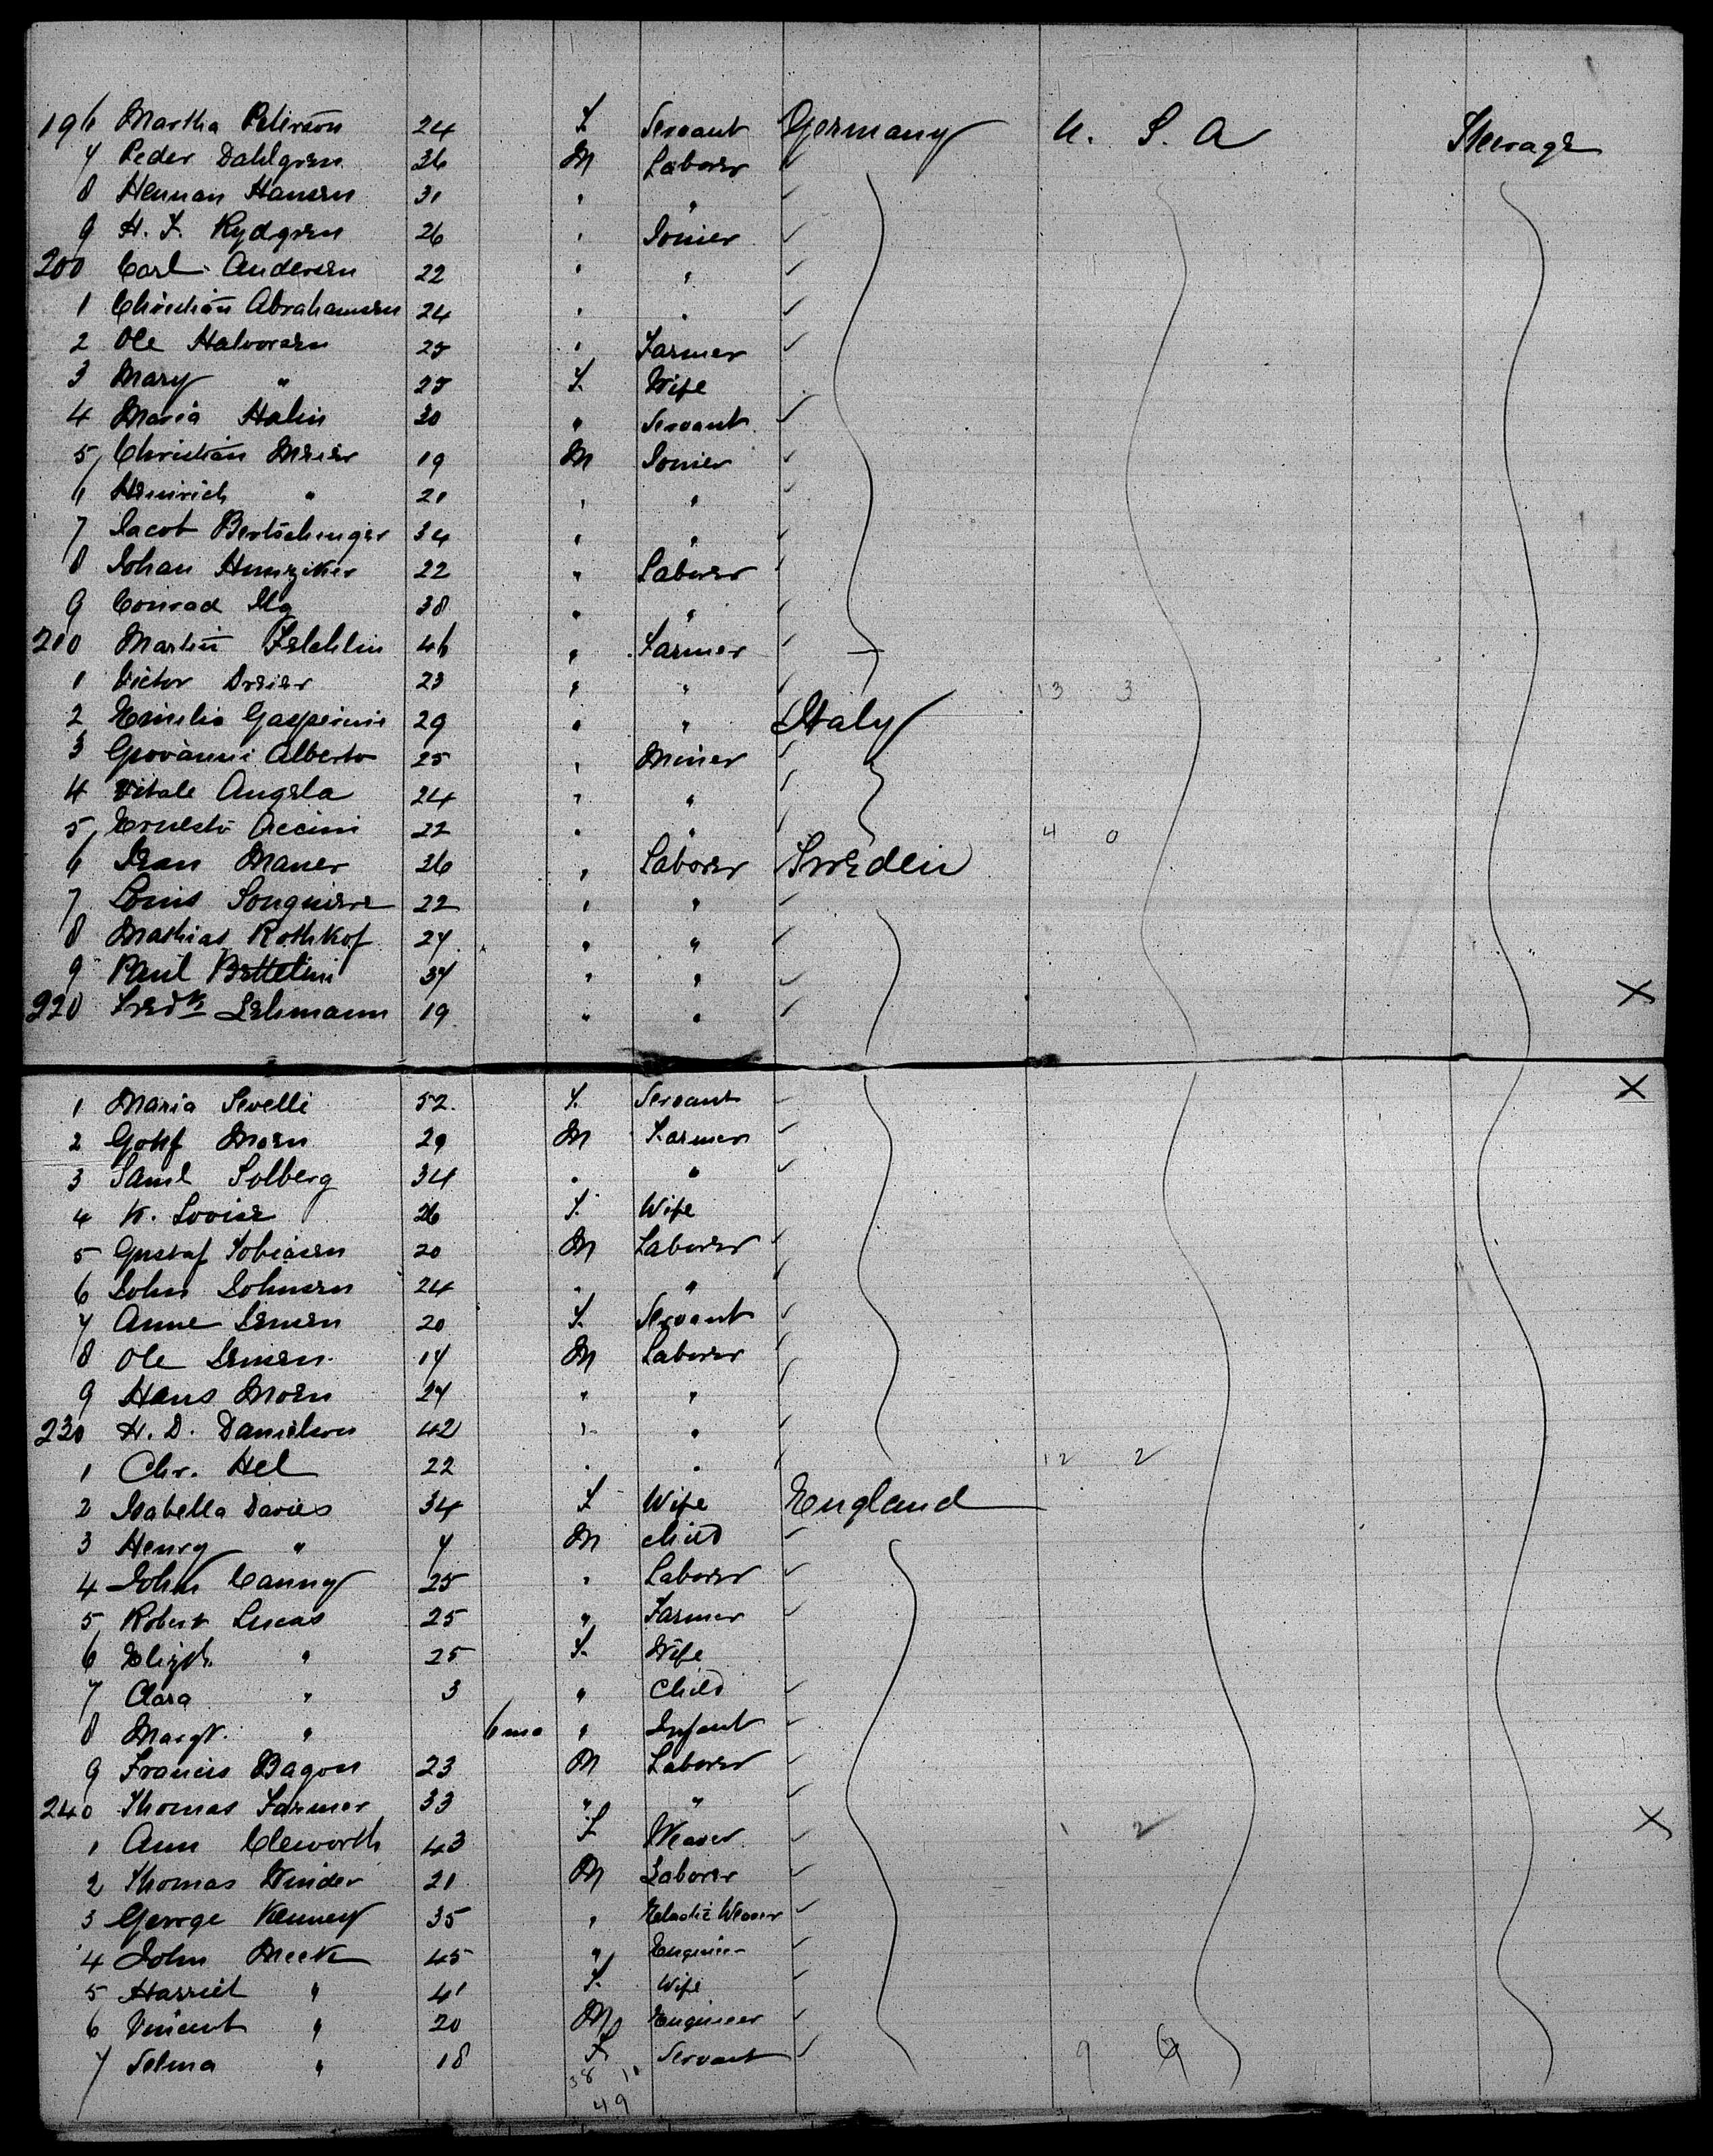 196 Martha Peterson 24 F. Servant Germany U. S. A Steerage
7 Peder Dahlgren 36 M Laborer ✓
8 Herman Hansen 31 " " ✓
9 H. F. Rydgren 26 " Joiner ✓
200 Carl Andersen 22 " " ✓
1 Christian Abrahamsen 24 " " ✓
2 Ole Halvorsen 25 " Farmer ✓
3 Mary " 25 F. Wife
4 Maria Halin 30 " Servant ✓
5 Christian Meier 19 M Joiner ✓
6 Heinrich " 21 " " ✓
7 Jacob Bertschinger 34 " " ✓
8 Johan Hunziker 22 " Laborer ✓
9 Conrad Ilg 38 " " ✓
210 Martin 46 " Farmer ✓
1 Victor Dreier 23 " " ✓ 13 3
2 Emilio Gasperini 29 " " Italy
3 Giovanni Alberto 25 " Miner ✓
4 Vitale Angela 24 " " ✓
5 Ernesto Accini 22 " " ✓ 4 0
6 Jean Maner 36 " Laborer Sweden
7 Louis 22 " " ✓
8 Mathias Rothkof 27 " " ✓
9 Paul 37 " " ✓
220 Fredk Lehmann 19 " " ✓ X
1 Maria Sevelli 52 F. Servant ✓ X
2 Gottf Moen 29 M Farmer ✓
3 Saml Solberg 34 " " ✓
4 K. Lovise 26 F. Wife
5 Gustaf Tobiasen 20 M Laborer ✓
6 John Johnsen 24 " " ✓
7 Anne Jensen 20 F. Servant ✓
8 Ole Jensen 17 M Laborer ✓
9 Hans Moen 27 " " ✓
230 H. D. Danielson 42 " " ✓
1 Chr. Hel 22 " " ✓ 12 2
2 Isabella Davies 34 F Wife England
3 Henry " 7 M child ✓
4 John Canny 25 " Laborer ✓
5 Robert Lucas 25 " Farmer ✓
6 Elizth. " 25 F. Wife
7 Clara " 3 " Child ✓
8 Margt. " 6 mo " Infant ✓
9 Francis Bagon 23 M Laborer ✓
240 Thomas Farmer 33 " " ✓ X
1 Ann Cleworth 43 F Weaver ✓ 1 2
2 Thomas Winder 21 M Laborer ✓
3 George Kenney 35 " Elastic Weaver ✓
4 John Meek 45 " Engineer ✓
5 Harriet " 41 F. Wife ✓
6 Vincent " 20 M Engineer ✓
7 Selma " 18 F Servant ✓ 9 9
38 11
49